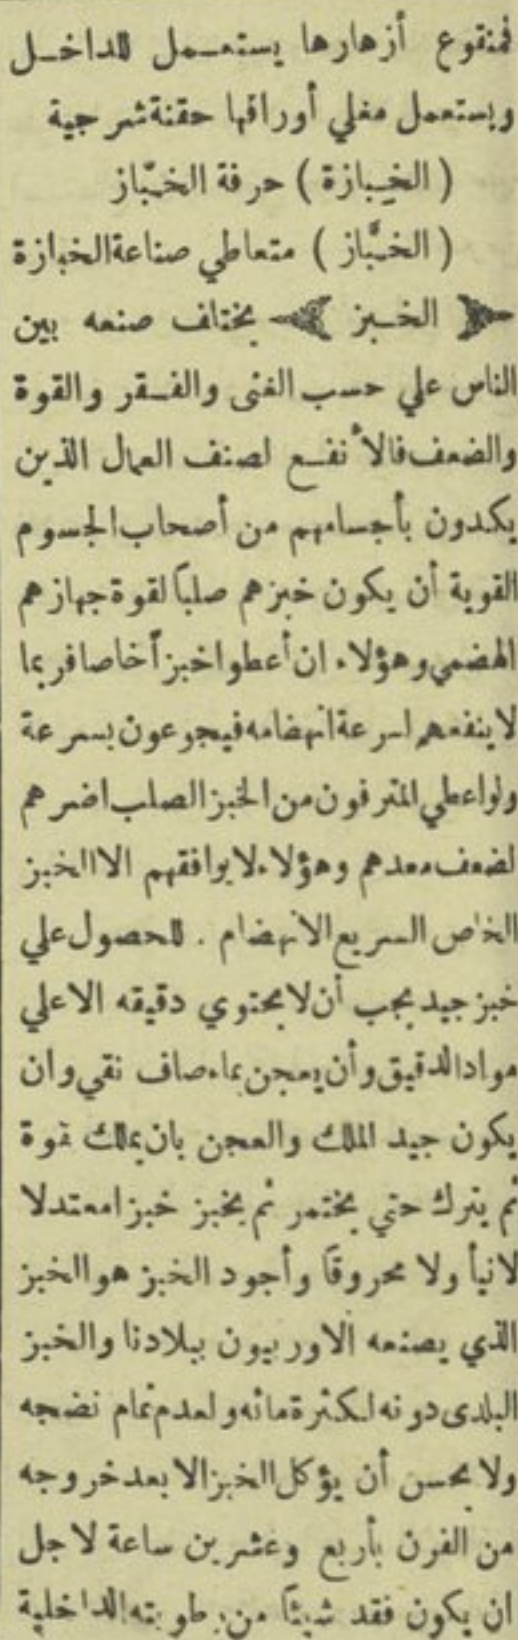 فمنقوع أزهارها يستعمل للداخل
ويستعمل مغلي أوراقها حقنة شرجية
( الخبازة ) حرفة الخبّاز
( الخبَّاز ) متعاطي صناعة الخبازة
الخبز يختلف صنعه بين
الناس علي حسب الغنى والفقر والقوة
والضعف فالأنفع لصنف العمال الذين
يكدون بأجسامهم من أصحاب الجسوم
القوية أن يكون خبزهم صلباً لقوة جهازهم
الهضمي وهؤلاء ان أعطوا خبزاً خاصا فربما
لا ينفعهم لسرعة انهضامه فيجوعون بسرعة
ولو اعطي المترفون من الخبز الصلب اضرهم
لضعف معدهم وهؤلاء لا يوافقهم الا الخبز
الخاص السريع الانهضام . للحصول علي
خبز جيد يجب أن لا يحتوي دقيقه الا علي
مواد الدقيق وأن يعجن بماء صاف نقي وان
يكون جيد الملك والعجن بان يملك بقوة
ثم يترك حتي يختمر ثم يخبز خبزا معتدلا
لا نيأ ولا محروقاً وأجود الخبز هو الخبز
الذي يصنعه الاوربيون ببلادنا والخبز
البلدى دونه لكثرة مائه ولعدم تمام نضجه
ولا يحسن أن يؤكل الخبز الا بعد خروجه
من الفرن بأربع وعشرين ساعة لاجل
ان يكون فقد شيئاً من رطوبته الداخلية